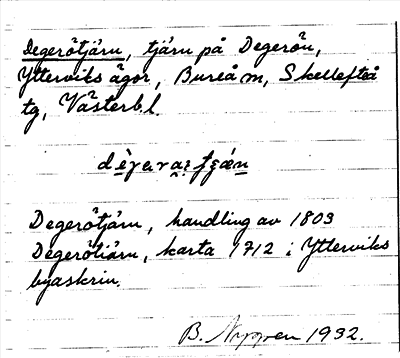 Degerötjärn, tjärn på Degerön,
Ytterviks ägor, Bureå m, Skellefteå
tg, Västerb.l.
Degerötjärn, handling av 1803
Degerötiärn, karta 1712 i Ytterviks
byaskrin.
B. Nygren 1932.